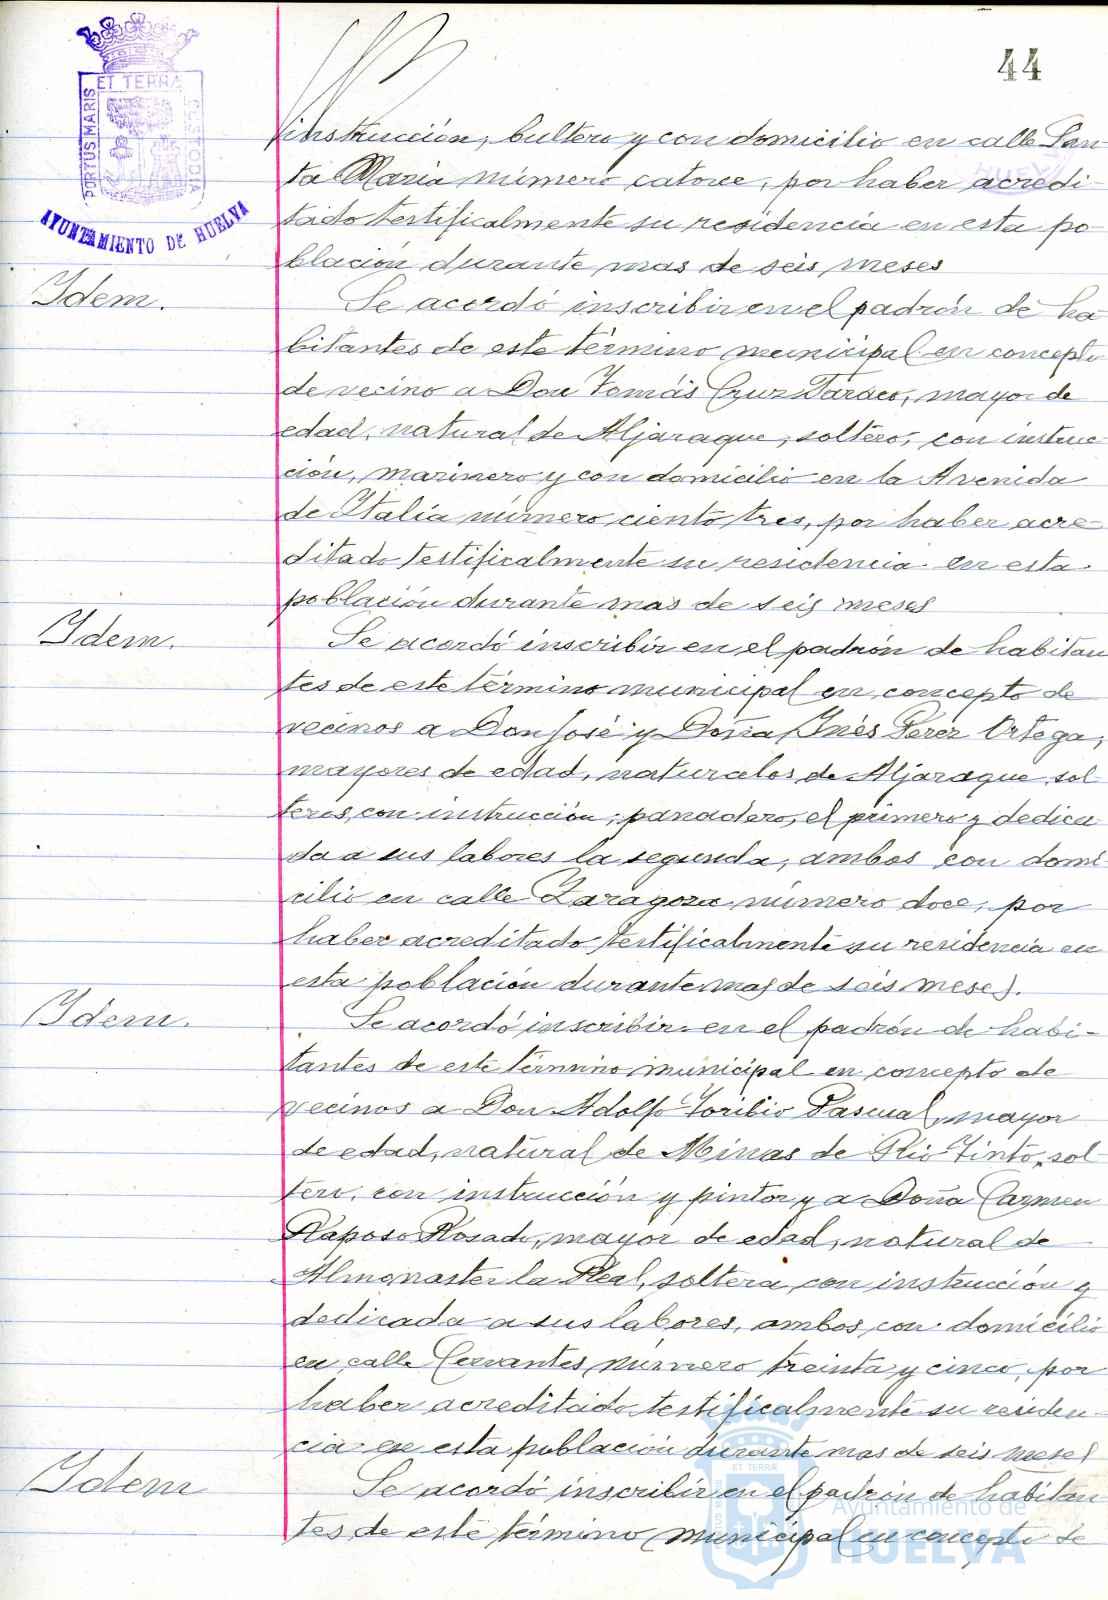 44
ET TERRA
PORTUS MARIS
CUSTODIA
AYUNTAMIENTO DE HUELVA
instrucción, bultero y con domicilio en calle San-
ta Maria número catorce, por haber acredi-
tado testificalmente su residencia en esta po-
blación durante mas de seis meses
Idem.
Se acordó inscribir en el padrón de ha-
bitantes de este término municipal en concepto
de vecino a Don Tomás Cruz Taraco, mayor de
edad, natural de Aljaraque, soltero, con instruc-
ción, marinero y con domicilio en la Avenida
de Italia número ciento tres, por haber acre-
ditado testificalmente su residencia en esta
población durante mas de seis meses
Idem.
Se acordó inscribir en el padrón de habitan-
tes de este término municipal en concepto de
vecinos a Don José y Doña Inés Pérez Ortega,
mayores de edad, naturales de Aljaraque, sol-
teros, con instrucción, panadero, el primero y dedica-
da a sus labores la segunda, ambos con domi-
cilio en calle Zaragoza número doce, por
haber acreditado testificalmente su residencia en
esta población durante mas de seis meses.
Idem.
Se acordó inscribir en el padrón de habi-
tantes de este término municipal en concepto de
vecinos a Don Adolfo Toribio Pascual, mayor
de edad, natural de Minas de Rio Tinto, sol-
tero, con instrucción y pintor y a Doña Carmen
Raposo Rosado, mayor de edad, natural de
Almonaster la Real, soltera, con instrucción y
dedicada a sus labores, ambos con domicilio
en calle Cervantes número treinta y cinco, por
haber acreditado testificalmente su residen-
cia en esta población durante mas de seis meses
Idem
Se acordó inscribir en el padrón de habitan-
tes de este término municipal en concepto de
Ayuntamiento de
HUELVA